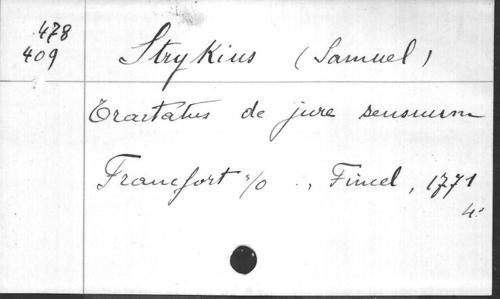 478
409
Strykius (Samuel)
Tractatus de jure sensuum
Francfort s/o ., Fincel, 1771
4: